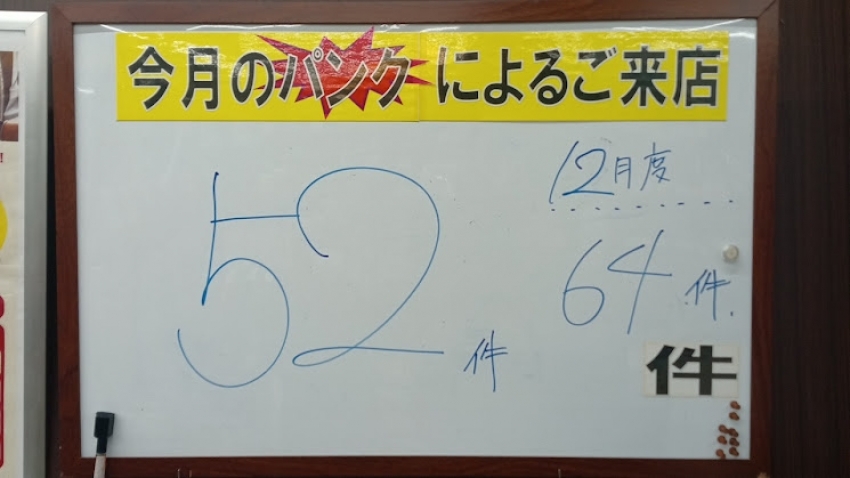 今月のパンクによるご来店
12月度
52件
64件
件